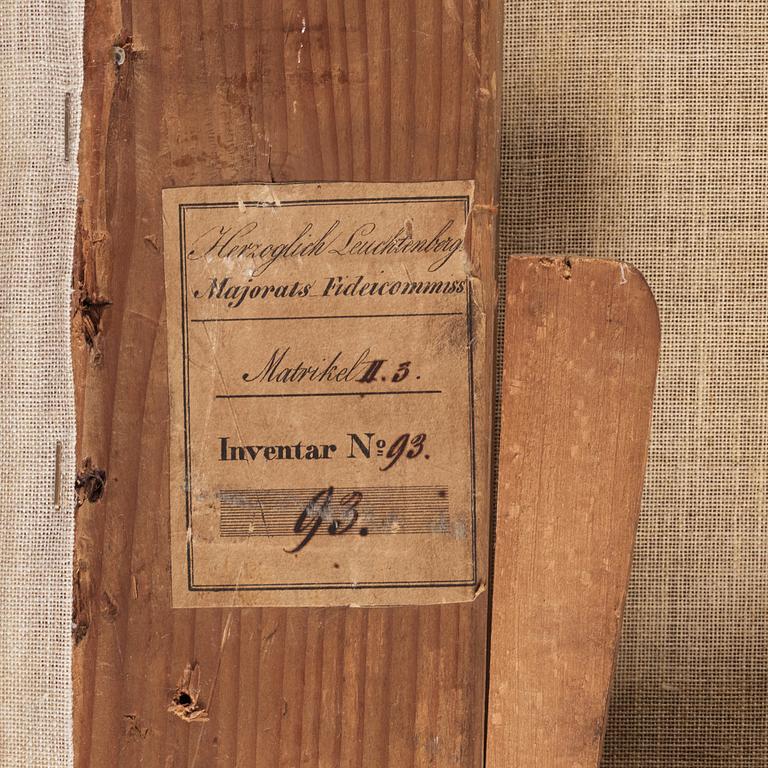 Herzoglich Leuchtenberg
Majorats Fideicommiss
Matrikel II. 3.
Inventar Nº 93.
93.